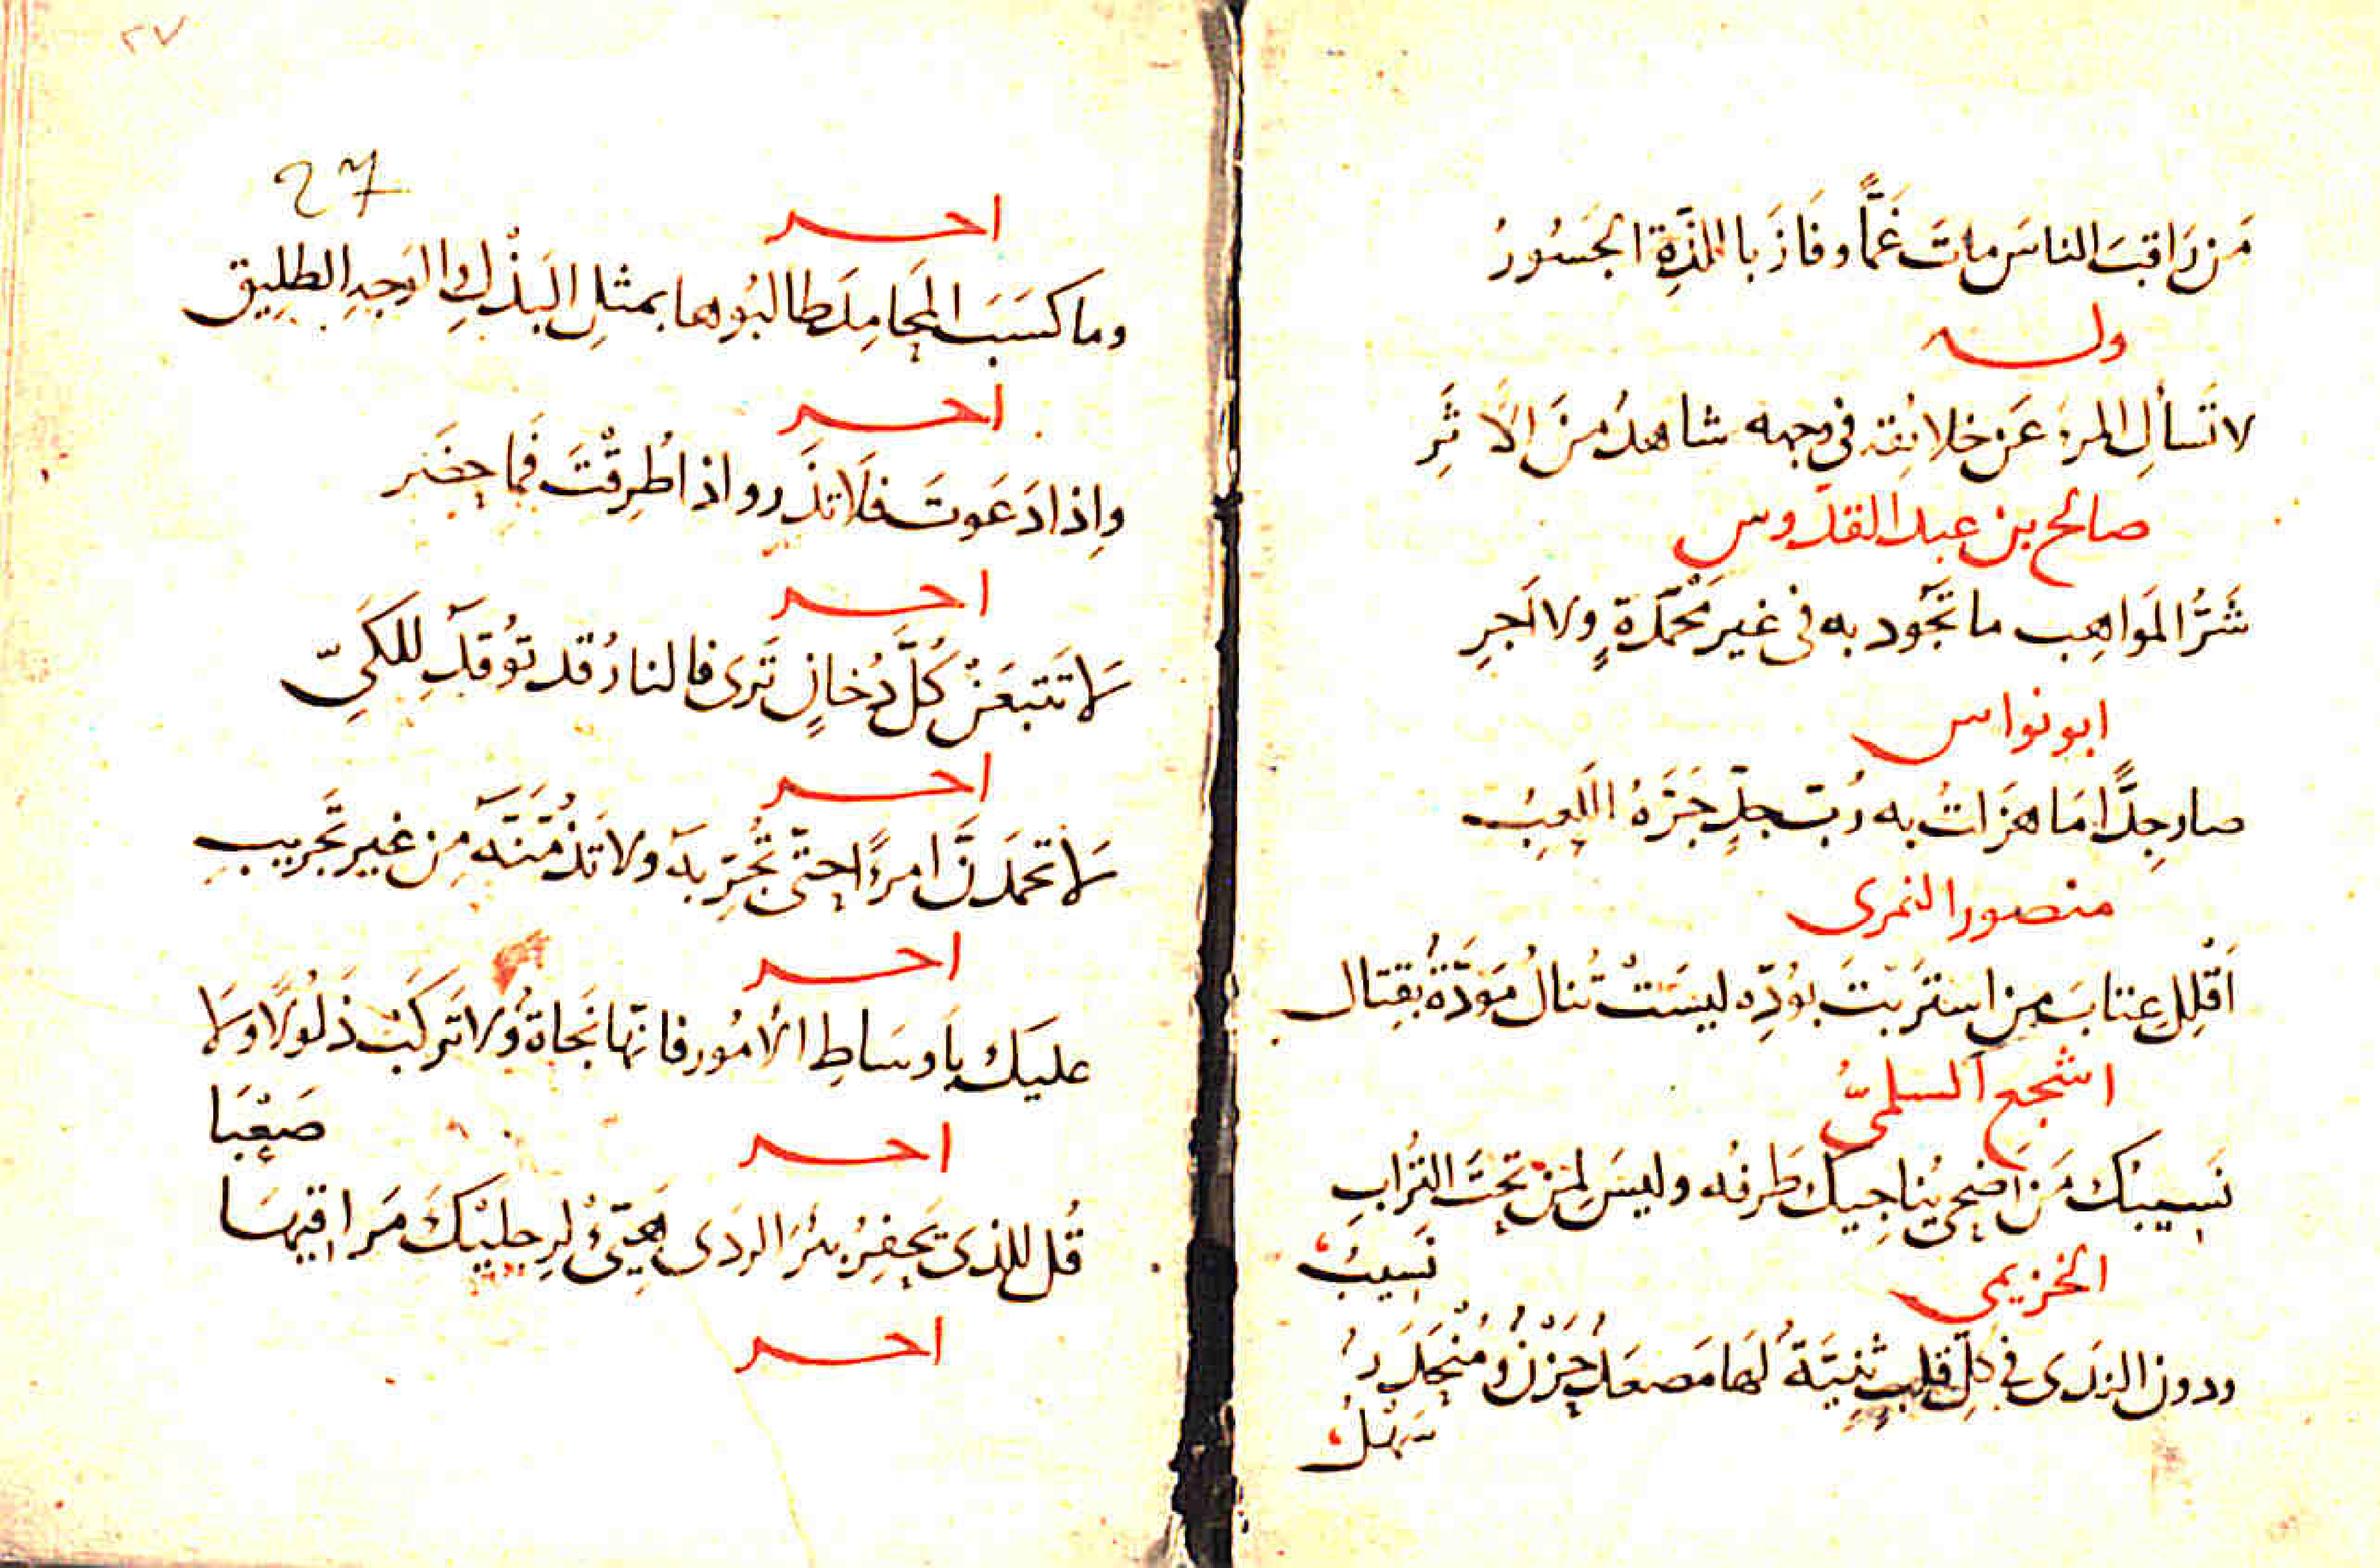 مَن رَاقبَ الناسَ ماتَ غَمًّا وفَازَ باللذَّةِ الجَسُورُ
وله
لا تَسألِ المرءَ عَن خلائِقِه في وجهه شاهدٌ مِنَ الأثَرِ
صالح بن عبد القدّوس
شَرُّ المَوَاهِب ما تَجُود به في غيرِ مَحْمَدَةٍ ولا أجرِ
ابو نواس
صار جِدًّا مَا هَزَلتُ به رُبّ جدٍّ جَرَّهُ اللَعِبُ
منصور النمرى
اَقْلِل عِتابَ مَن استَرَبتَ بوُدِّه ليسَتْ تُنالُ مَوَدّةٌ بقِتال
اشجع السلمىّ
نَسِيبُكَ مَن اَضحى يُناجِيكَ طَرفُه وليسَ لِمَن تَحتَ التُرابِ
نَسيبُ
الخزيمى
ودون الندَى في كلِّ قلبٍ ثنِيَّةٌ لَها مَصعَدٌ حَزْنٌ ومُنْحَدَرٌ
سَهْلُ
٢٧
27
اخـــر
وما كسَبَ المَحَامِدَ طالبُوها بمثلِ البَذْلِ والوَجهِ الطلِيق
اخـــر
وإذا دَعَوتَ فلَا تذَر واذا طُرِقْتَ فَما حضَر
اخـــر
لَا تَتبَعَنْ كُلَّ دُخانٍ تَرى فالنارُ قد تُوقَدُ لِلكَىِّ
اخـــر
لَا تحمَدَنَّ امرءًا حتّى تُجَرِّبَهُ ولا تَذُمَّنَّهُ مِن غيرِ تَجريبِ
اخـــر
عليَكَ بِاَوسَاطِ الأمُور فانّها نَجاةٌ ولا تَركَبْ ذَلُولًا ولَا
صَعْبَا
اخـــر
قُل للذى يَحفِرُ بئرَ الردَى هَيِّئْ لِرِجلَيْكَ مَرَاقِيهَا
اخـــر